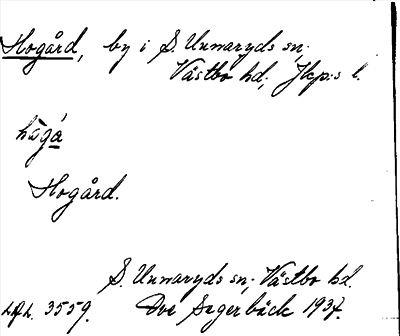 Hogård, by i S. Unnaryds sn.
Västbo hd, Jkp:s l.
hògá
Hogård.
S. Unnaryds sn, Västbo hd.
3559. Ove Segerbäck 1937.